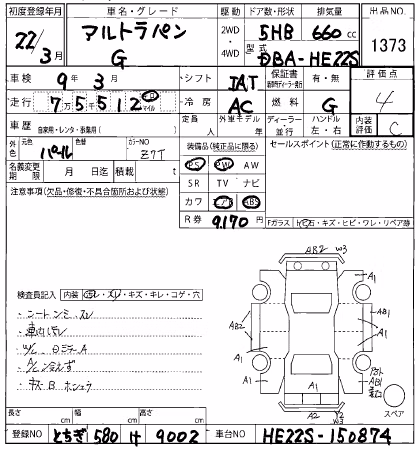 初度登録年月 車名・グレード 駆動 ドア数・形状 排気量 出品NO
22/3月 アルトラパン G 2WD 4WD 5HB 660cc 1373
型式 DBA-HE22S
車検 9年3月 シフト IAT 保証書 有・無 評価点 4
走行 7万5512 km マイル 冷房 AC 燃料 G
車歴 自家用・レンタ・事業用( ) 定員 人 外車モデル 年 ディーラー 並行 ハンドル 左・右 内装評価 C
外色 元色 パール 色替 カラーNO Z7T 装備品(純正品に限る) セールスポイント(正常に作動するもの)
名義変更期限 月 日迄 積載 t PS PW AW
注意事項(欠品・修復・不具合箇所および状態) SR TV ナビ
カワ エアB ABS
R券 9,170円 Fガラス ト石・キズ・ヒビ・ワレ・リペア跡
AB2 W3
A1 A1
AB2 AB1
A1 A1
A1
A1 AB1
A2 Y2 W3
スペア
検査員記入 内装 ヨゴレ・スレ・キズ・キレ・コゲ・穴
・シートシミ・スレ
・車内汚レ
・A/C冷えず
・キズB ホシュウ
長さ cm 幅 cm 高さ cm
登録NO とちぎ 580 け 9002 車台NO HE22S-150874